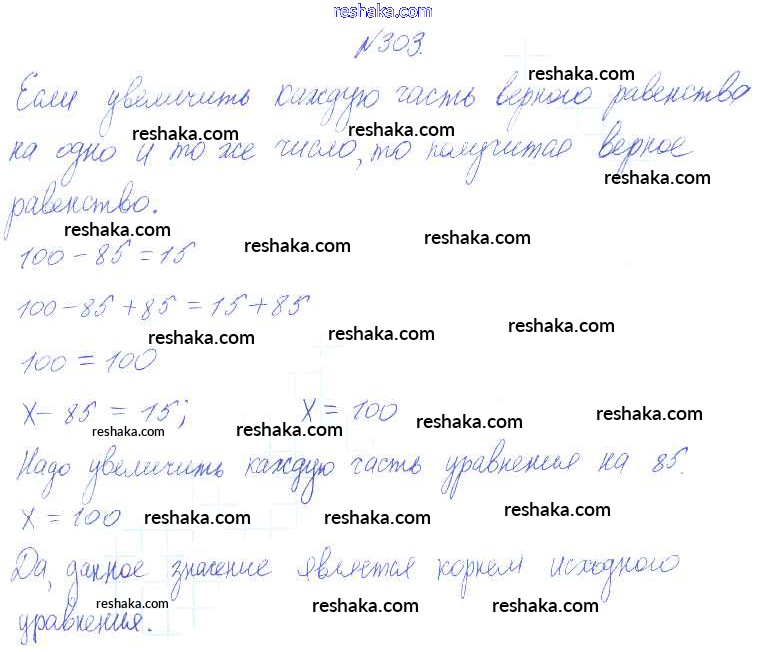 reshaka.com
№303.
reshaka.com
Если увеличить каждую часть верного равенства
reshaka.com reshaka.com
на одно и то же число, то получится верное
reshaka.com
равенство.
reshaka.com reshaka.com reshaka.com
100 - 85 = 15
100 - 85 + 85 = 15 + 85
reshaka.com reshaka.com reshaka.com
100 = 100
x - 85 = 15; x = 100
reshaka.com reshaka.com reshaka.com reshaka.com
Надо увеличить каждую часть уравнения на 85.
x = 100 reshaka.com reshaka.com reshaka.com
Да, данное значение является корнем исходного
reshaka.com reshaka.com reshaka.com
уравнения.